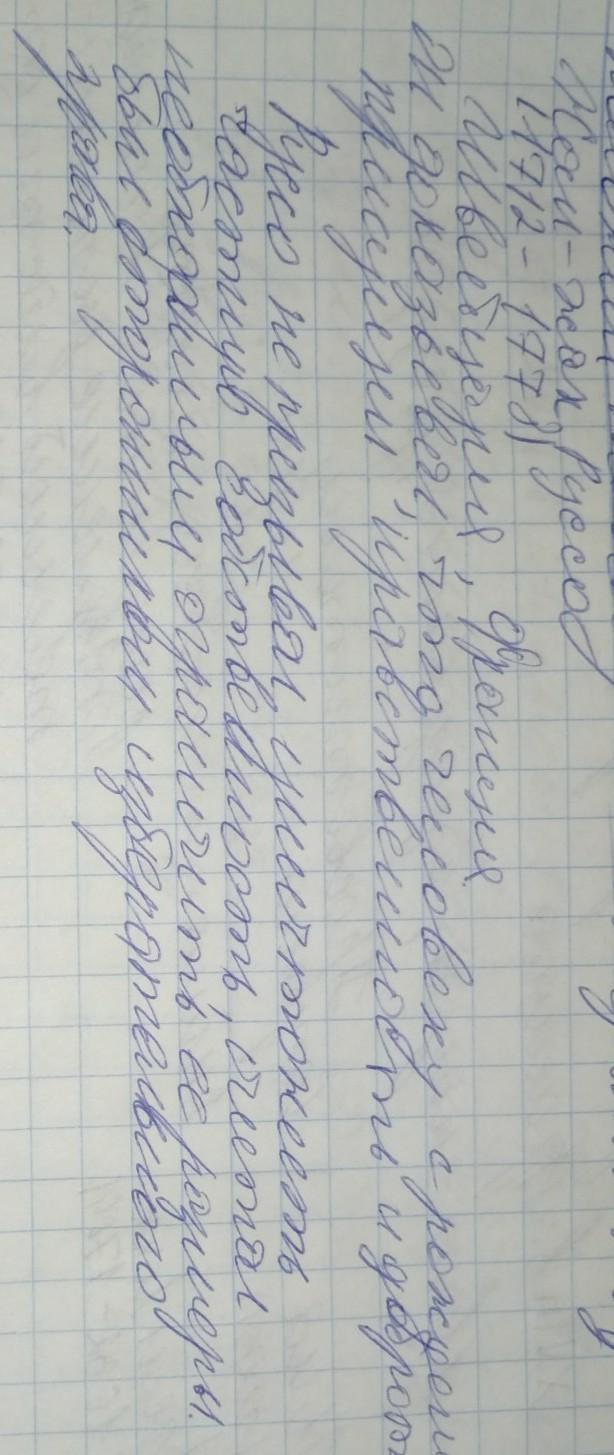 Жан-жак Руссо
1712-1778
Швейцария, Франция
Ж доказывал, что человеку с рожден
присущи нравственность и доброт
Русо не призывал уничтожить
частную собственность, считал
необходимым ограничить ее размеры.
был сторонником избирательного
права.